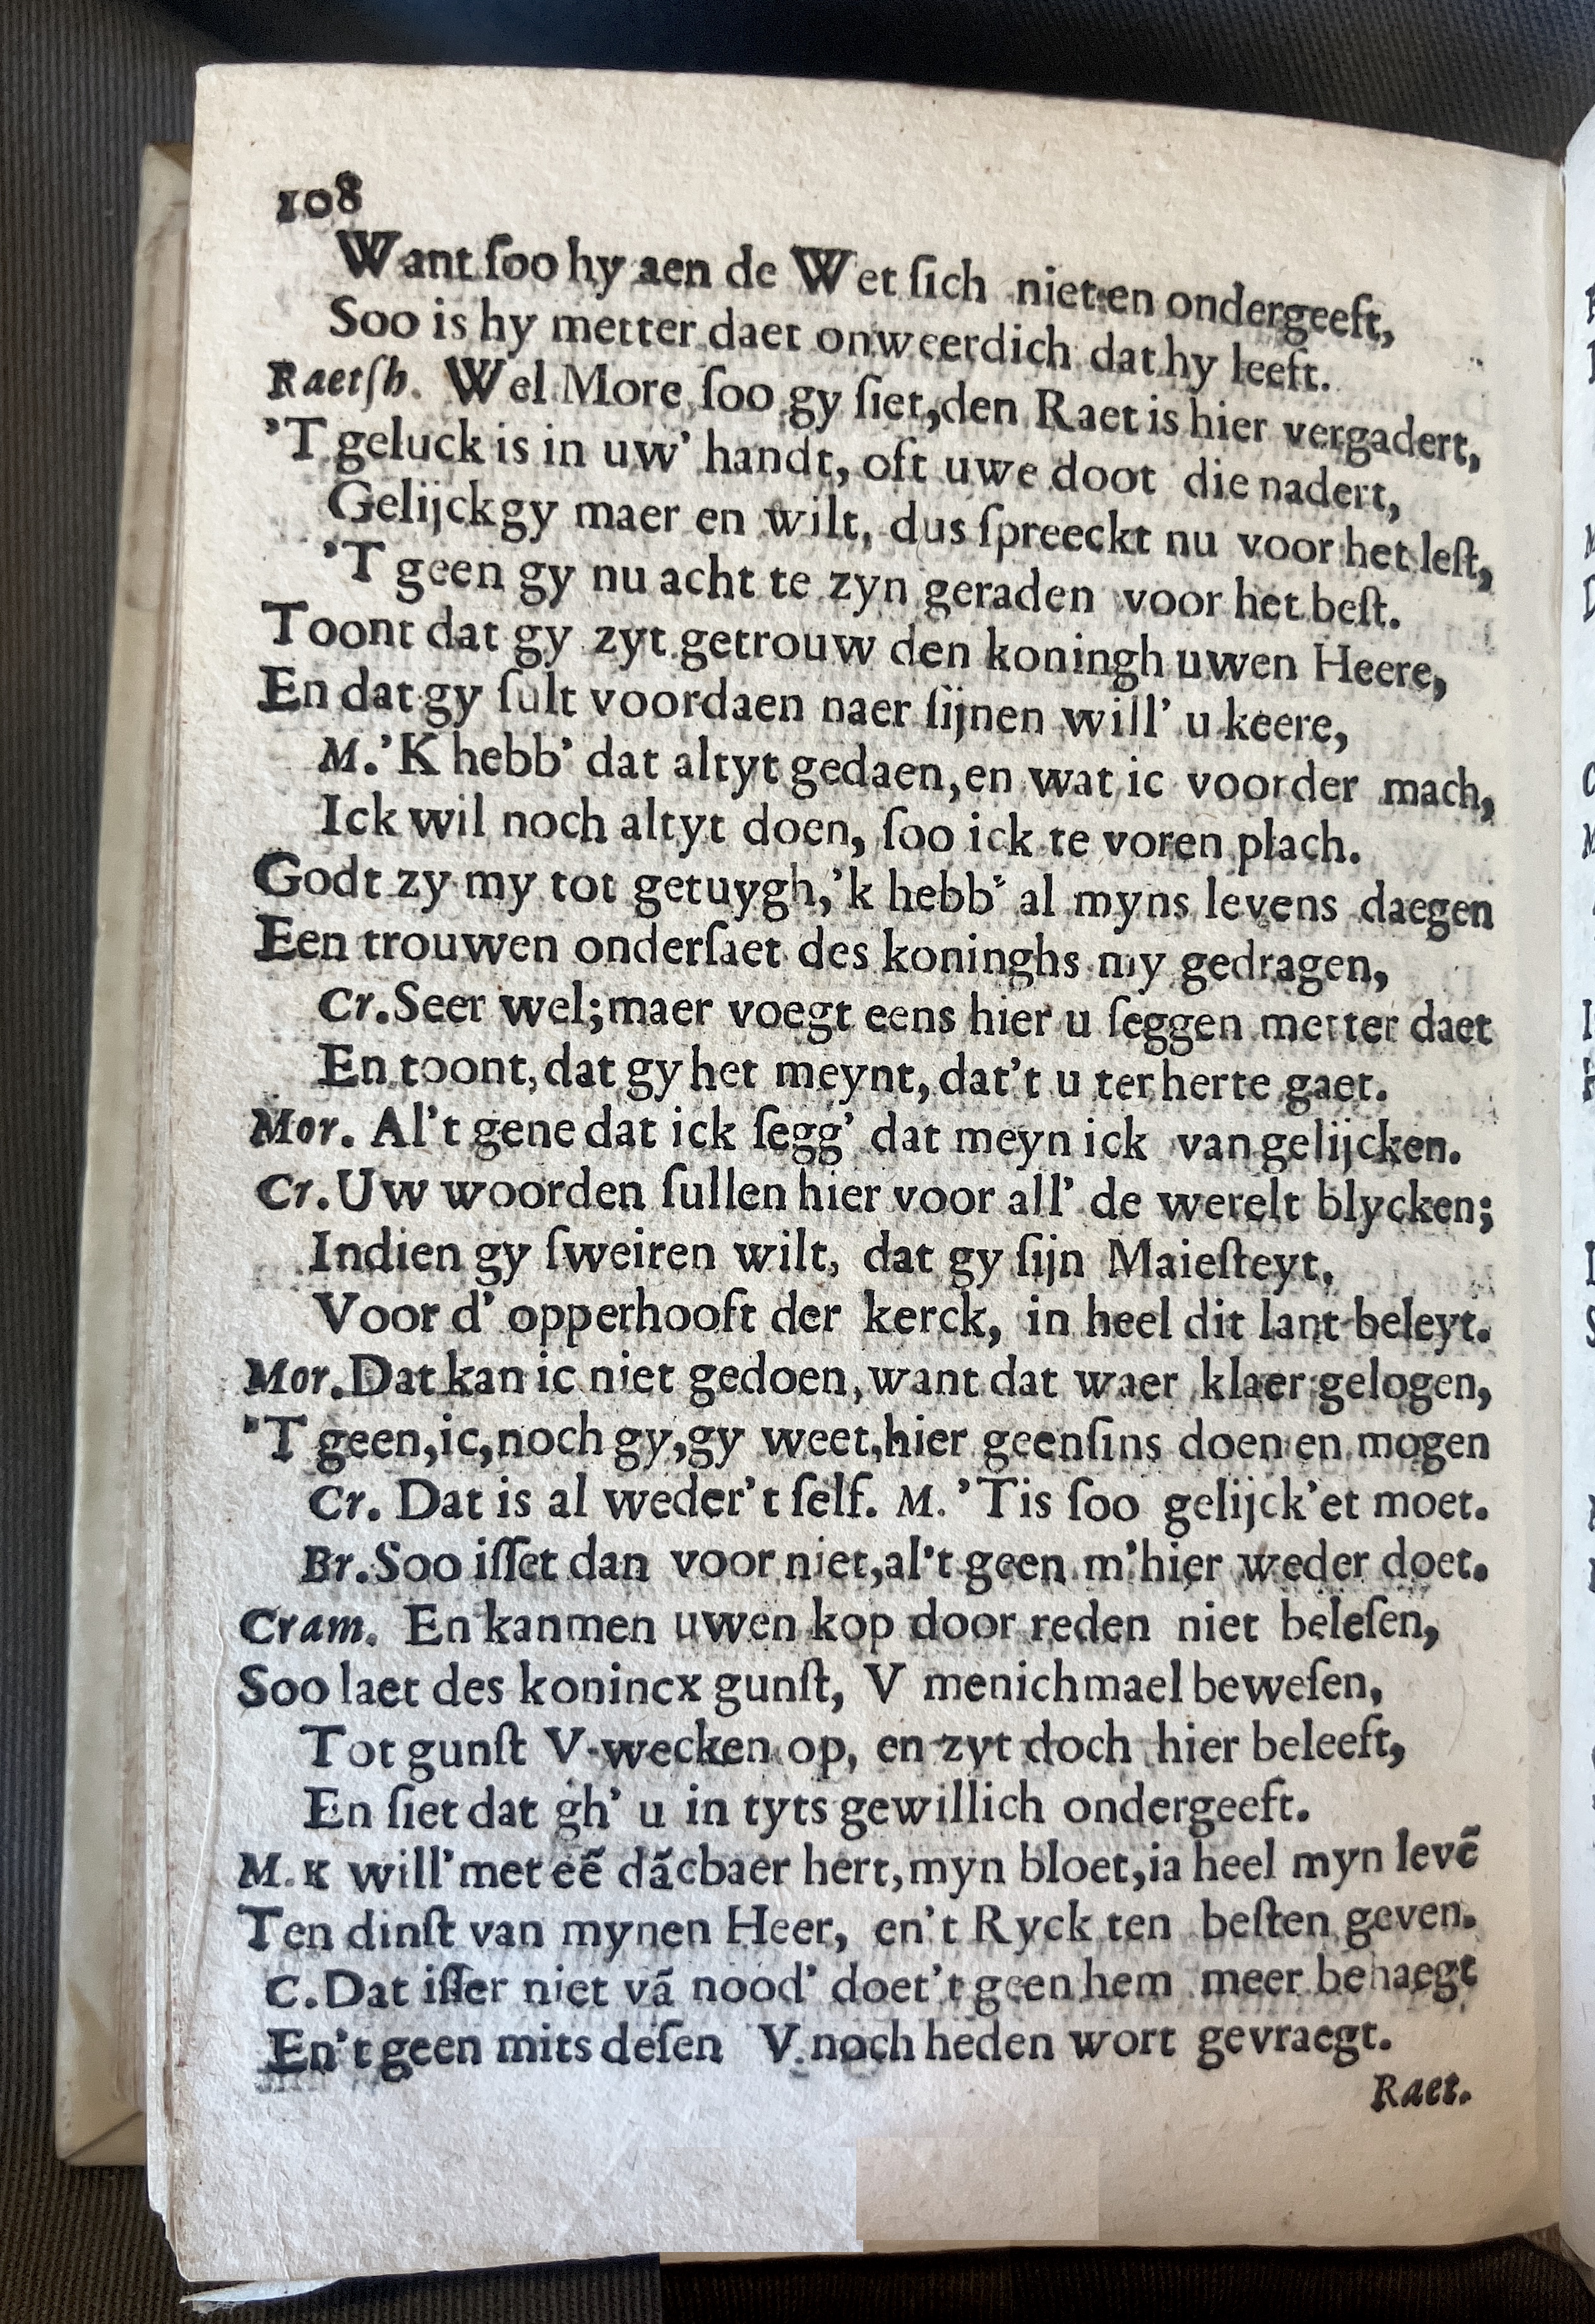 108
Want ſoo hy aen de Wet ſich niet en ondergeeft,
Soo is hy metter daet onweerdich dat hy leeft.
Raetſh. Wel More ſoo gy ſiet, den Raet is hier vergadert,
'T geluck is in uw' handt, oft uwe doot die nadert,
Gelijck gy maer en wilt, dus ſpreeckt nu voor het leſt,
'T geen gy nu acht te zyn geraden voor het beſt.
Toont dat gy zyt getrouw den koningh uwen Heere,
En dat gy ſult voordaen naer ſijnen will' u keere,
M. 'K hebb' dat altyt gedaen, en wat ic voorder mach,
Ick wil noch altyt doen, ſoo ick te voren plach.
Godt zy my tot getuygh, 'k hebb' al myns levens daegen
Een trouwen onderſaet des koninghs my gedragen,
Cr. Seer wel; maer voegt eens hier u ſeggen metter daet
En toont, dat gy het meynt, dat't u ter herte gaet.
Mor. Al't gene dat ick ſegg' dat meyn ick van gelijcken.
Cr. Uw woorden ſullen hier voor all' de werelt blycken;
Indien gy ſweiren wilt, dat gy ſijn Maieſteyt,
Voor d' opperhooft der kerck, in heel dit lant beleyt.
Mor. Dat kan ic niet gedoen, want dat waer klaer gelogen,
'T geen, ic, noch gy, gy weet, hier geenſins doen en mogen
Cr. Dat is al weder't ſelf. M. 'Tis ſoo gelijck'et moet.
Br. Soo iſſet dan voor niet, al't geen m'hier weder doet.
Cram. En kanmen uwen kop door reden niet beleſen,
Soo laet des konincx gunſt, V menichmael beweſen,
Tot gunſt V wecken op, en zyt doch hier beleeft,
En ſiet dat gh' u in tyts gewillich ondergeeft.
M. K will' met eẽ dãcbaer hert, myn bloet, ia heel myn levẽ
Ten dinſt van mynen Heer, en't Ryck ten beſten geven.
C. Dat iſſer niet vã nood' doet't geen hem meer behaegt
En't geen mits deſen V. noch heden wort gevraegt.
Raet.